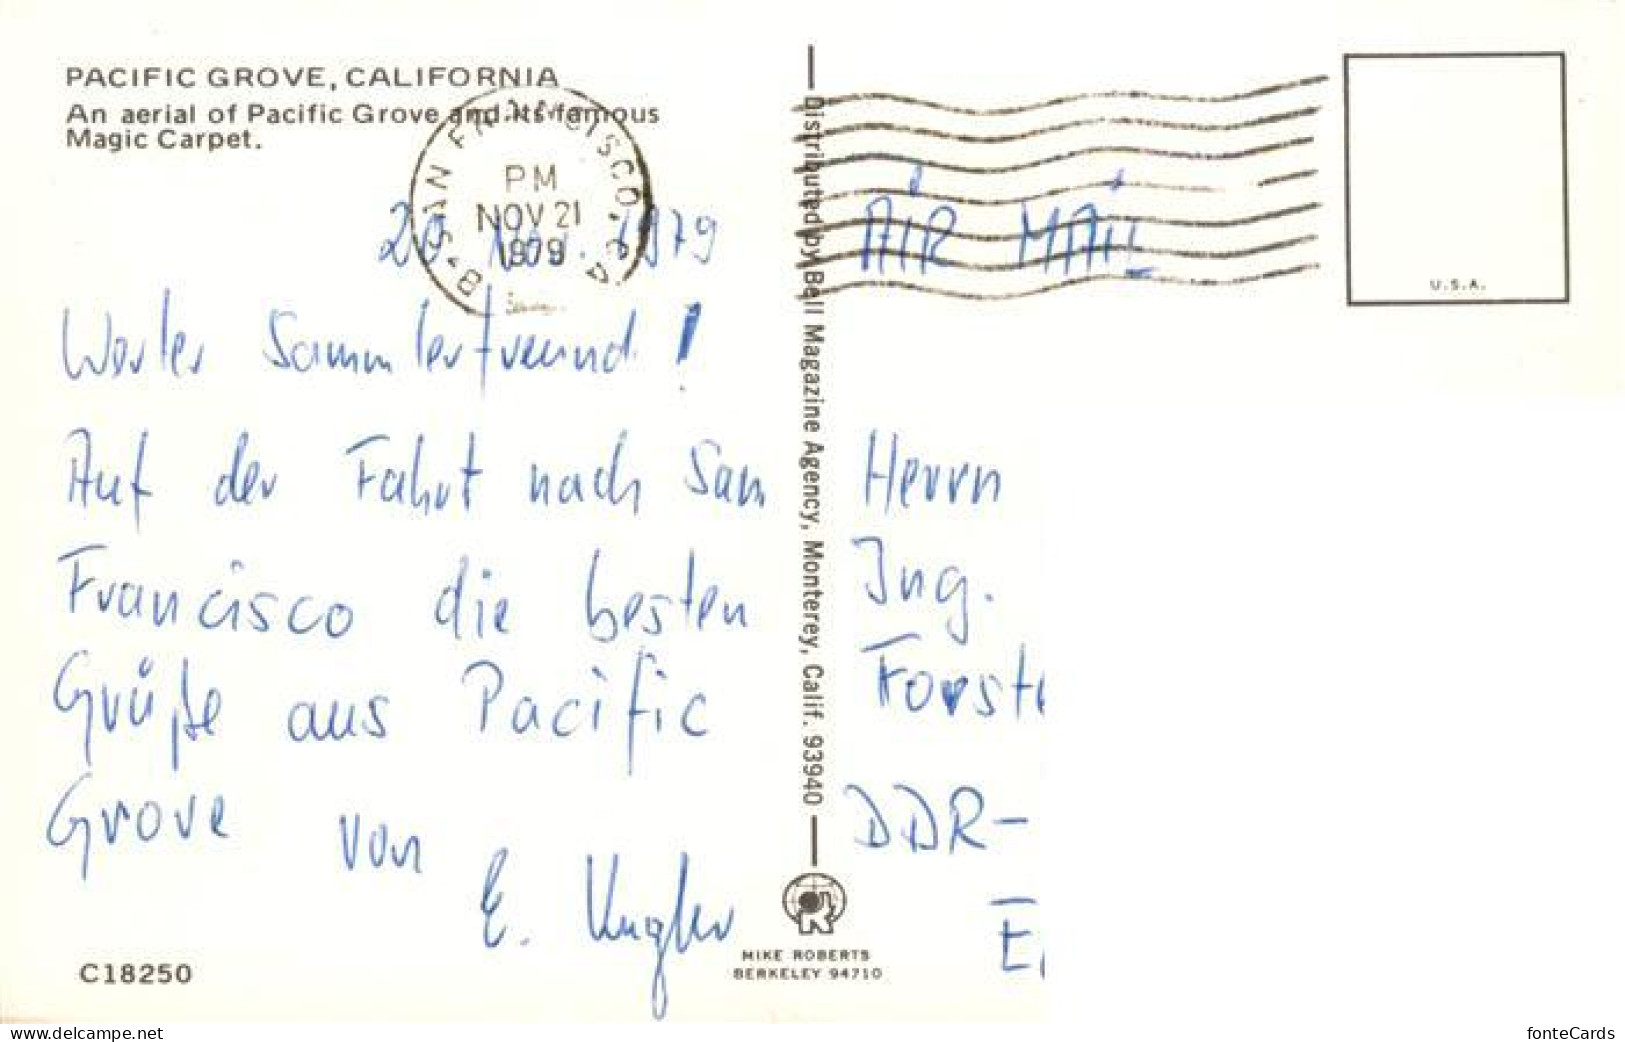 PACIFIC GROVE, CALIFORNIA
An aerial of Pacific Grove and its famous
Magic Carpet.
SAN FRANCISCO, CA
PM
NOV 21
1979
20. Nov. 1979
Werter Sammlerfreund!
Auf der Fahrt nach San
Francisco die besten
Grüße aus Pacific
Grove von
E. Kugler
C18250
Distributed by Bell Magazine Agency, Monterey, Calif. 93940
MIKE ROBERTS
BERKELEY 94710
AIR MAIL
U.S.A.
Herrn
Ing.
DDR-
www.delcampe.net
fonteCards